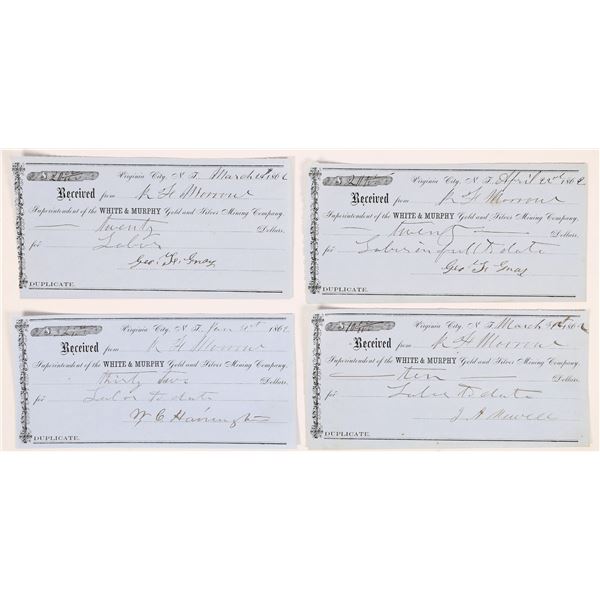 Virginia City, N. T. March 1862
$20
Received from R H Morrow
Superintendent of the WHITE & MURPHY Gold and Silver Mining Company.
Twenty Dollars,
for Labor
Geo. H. Gray
DUPLICATE.
Virginia City, N. T. April 1862
$20
Received from R H Morrow
Superintendent of the WHITE & MURPHY Gold and Silver Mining Company.
Twenty Dollars,
for Labor in full to date
Geo H Gray
DUPLICATE.
Virginia City, N. T. Jan 1862
$32
Received from R H Morrow
Superintendent of the WHITE & MURPHY Gold and Silver Mining Company.
Thirty two Dollars,
for Labor to date
W C Harrington
DUPLICATE.
Virginia City, N. T. March 1862
$10
Received from R H Morrow
Superintendent of the WHITE & MURPHY Gold and Silver Mining Company.
Ten Dollars,
for Labor to date
J A Newell
DUPLICATE.